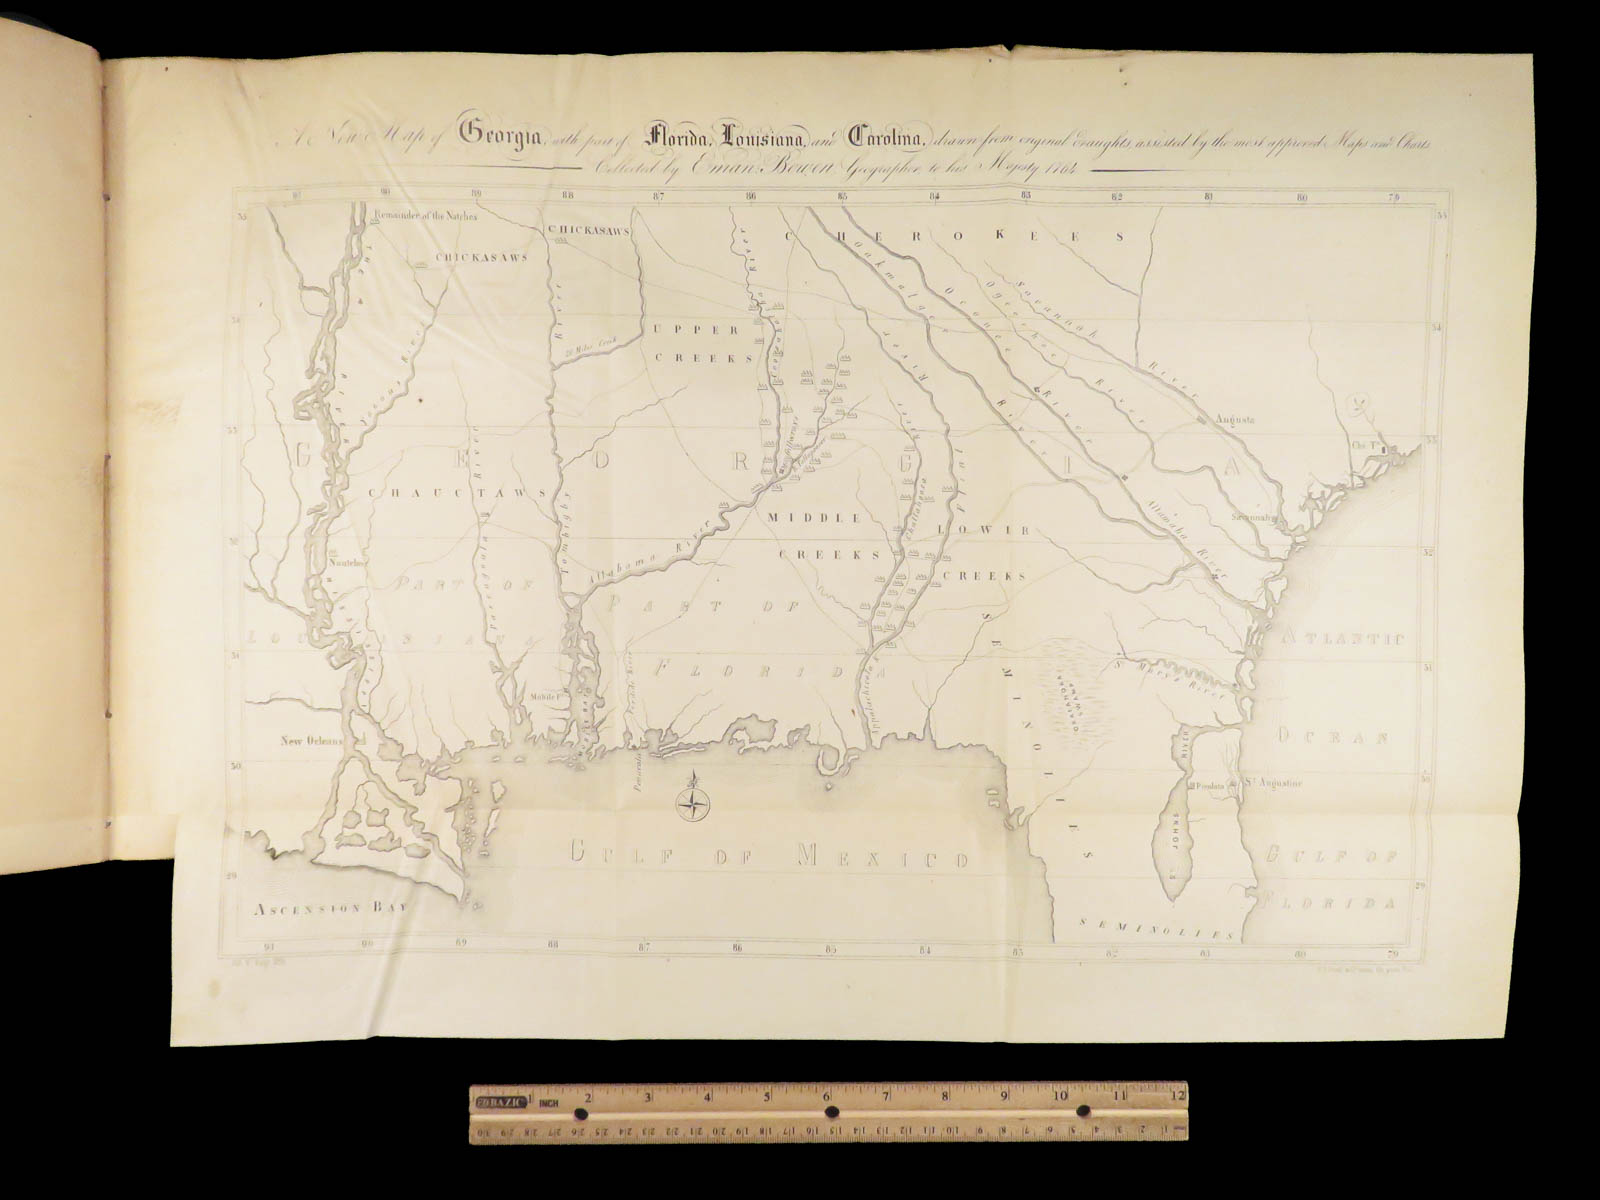 A New Map of Georgia, with part of Florida, Louisiana, and Carolina, drawn from original Draughts, assisted by the most approved Maps and Charts
Collected by Eman: Bowen, Geographer to his Majesty 1764
90 89 88 87 86 85 84 83 82 81 80 79
35 35
Remainder of the Natches
CHICKASAWS
CHICKASAWS
CHEROKEES
River
Oakmulgee River
Oconee River
Ogeechee River
Savannah River
34 34
UPPER
CREEKS
20 Miles Creek
Yazous River
River
Flint River
Augusta
33 33
GEORGIA
CHAUCTAWS
Pascagoula River
Tombigby
MIDDLE
CREEKS
LOWER
CREEKS
Alabama River
Alatamaha River
Savannah
32
Nautches
PART OF
LOUISIANA
PART OF
FLORIDA
SEMINOLIES
ATLANTIC
OCEAN
31 31
St Marys River
Mobile
MOBILE BAY
Pensacola
Appalachicola R
New Orleans
30
RIVER
Picolata
St Augustine
St JOHNS
GULF OF MEXICO
GULF OF
FLORIDA
29 29
ASCENSION BAY
SEMINOLIES
91 90 89 88 87 86 85 84 83 82 81 80 79
BAZIC 1 INCH 2 3 4 5 6 7 8 9 10 11 12
30 29 28 27 26 25 24 23 22 21 20 19 18 17 16 15 14 13 12 11 10 9 8 7 6 5 4 3 2 1